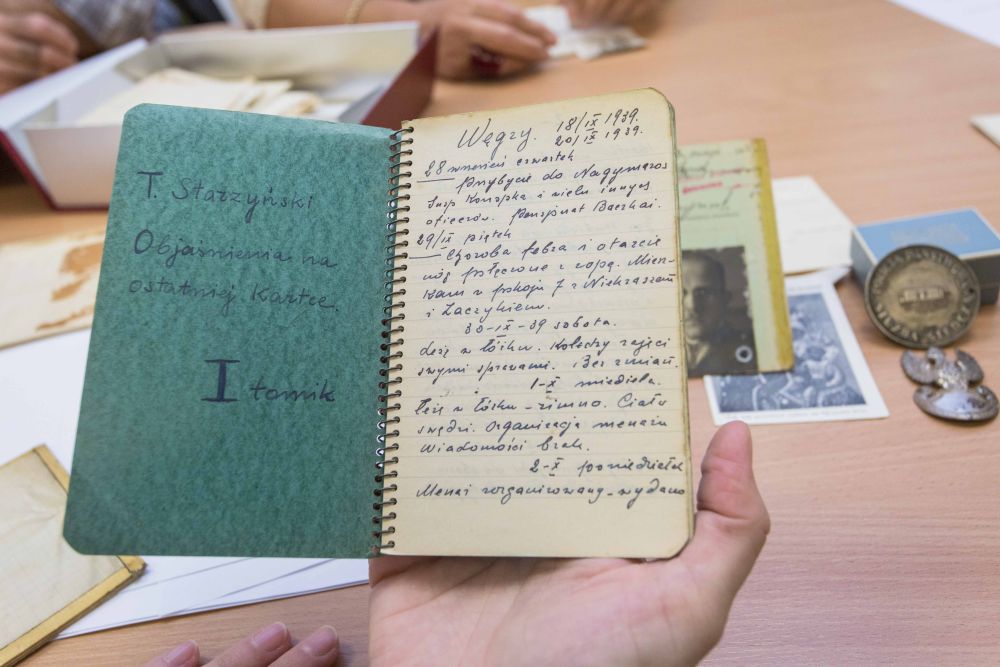 T. Starzyński
Objaśnienia na
ostatniej kartce
I tomik
Węgry. 18/IX 1939.
20/IX 1939.
28 wrzesień czwartek
Przybycie do Nagymaros
insp Konopka i wielu innych
oficerów. Pensjonat Baczkai.
29/IX piątek
Choroba febra i otarcie
nóg połączone z ropą. Miesz-
kam w pokoju 7 z Niekraszem
i Zaczykiem.
30-IX-39 sobota.
Leżę w łóżku. Koledzy zajęci
swymi sprawami. Bez zmian.
1-X niedziela.
Leżę w łóżku - zimno. Ciało
swędzi. Organizacja menażu
Wiadomości brak.
2-X poniedziałek
Menaż zorganizowany - wydano